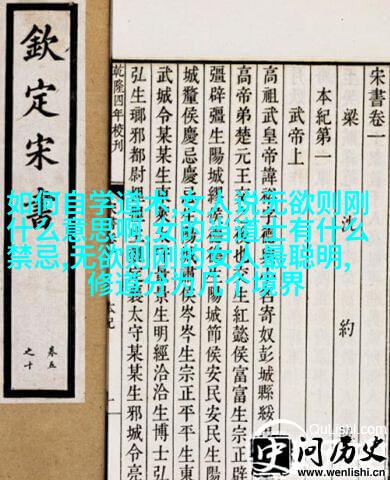 欽定宋書
卷五
之十
宋書卷一
梁 沈 約
本紀第一
武帝上
高祖武皇帝諱裕字德輿名寄奴彭城縣綏
高帝弟楚元王交也交生紅懿侯富富生宗
彊辟彊生陽城繆侯生陽城節侯安民安民生陽
城釐侯慶忌慶忌生陽城肅侯岑岑生宗正平平生東
武城令某某生東萊景生明經洽洽生博士弘
弘生瑯邪都尉悝襄太守某某生邪城令亮
乾隆四年校刊
如何自学道术,女人说无欲则刚
什么意思啊,女的当道士有什么
禁忌,无欲则刚的女人最聪明,
修道分为几个境界
QuLishi.com
问历史
www.wenlishi.cn